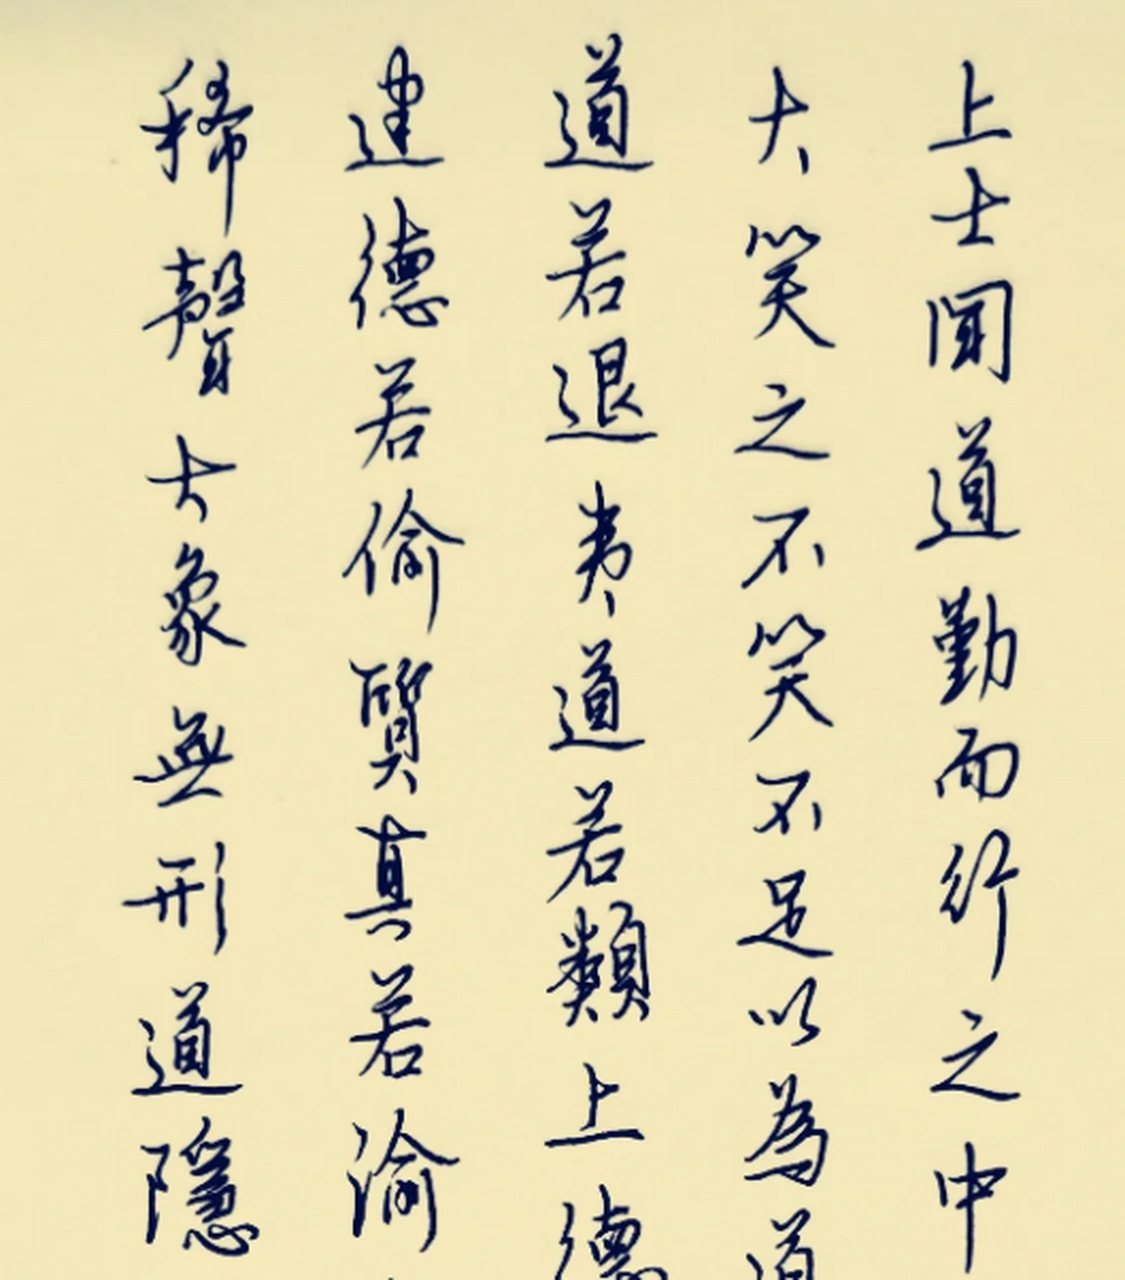 上士聞道勤而行之中
大笑之不笑不足以為道
道若退夷道若類上德
建德若偷質真若渝
稀聲大象無形道隱